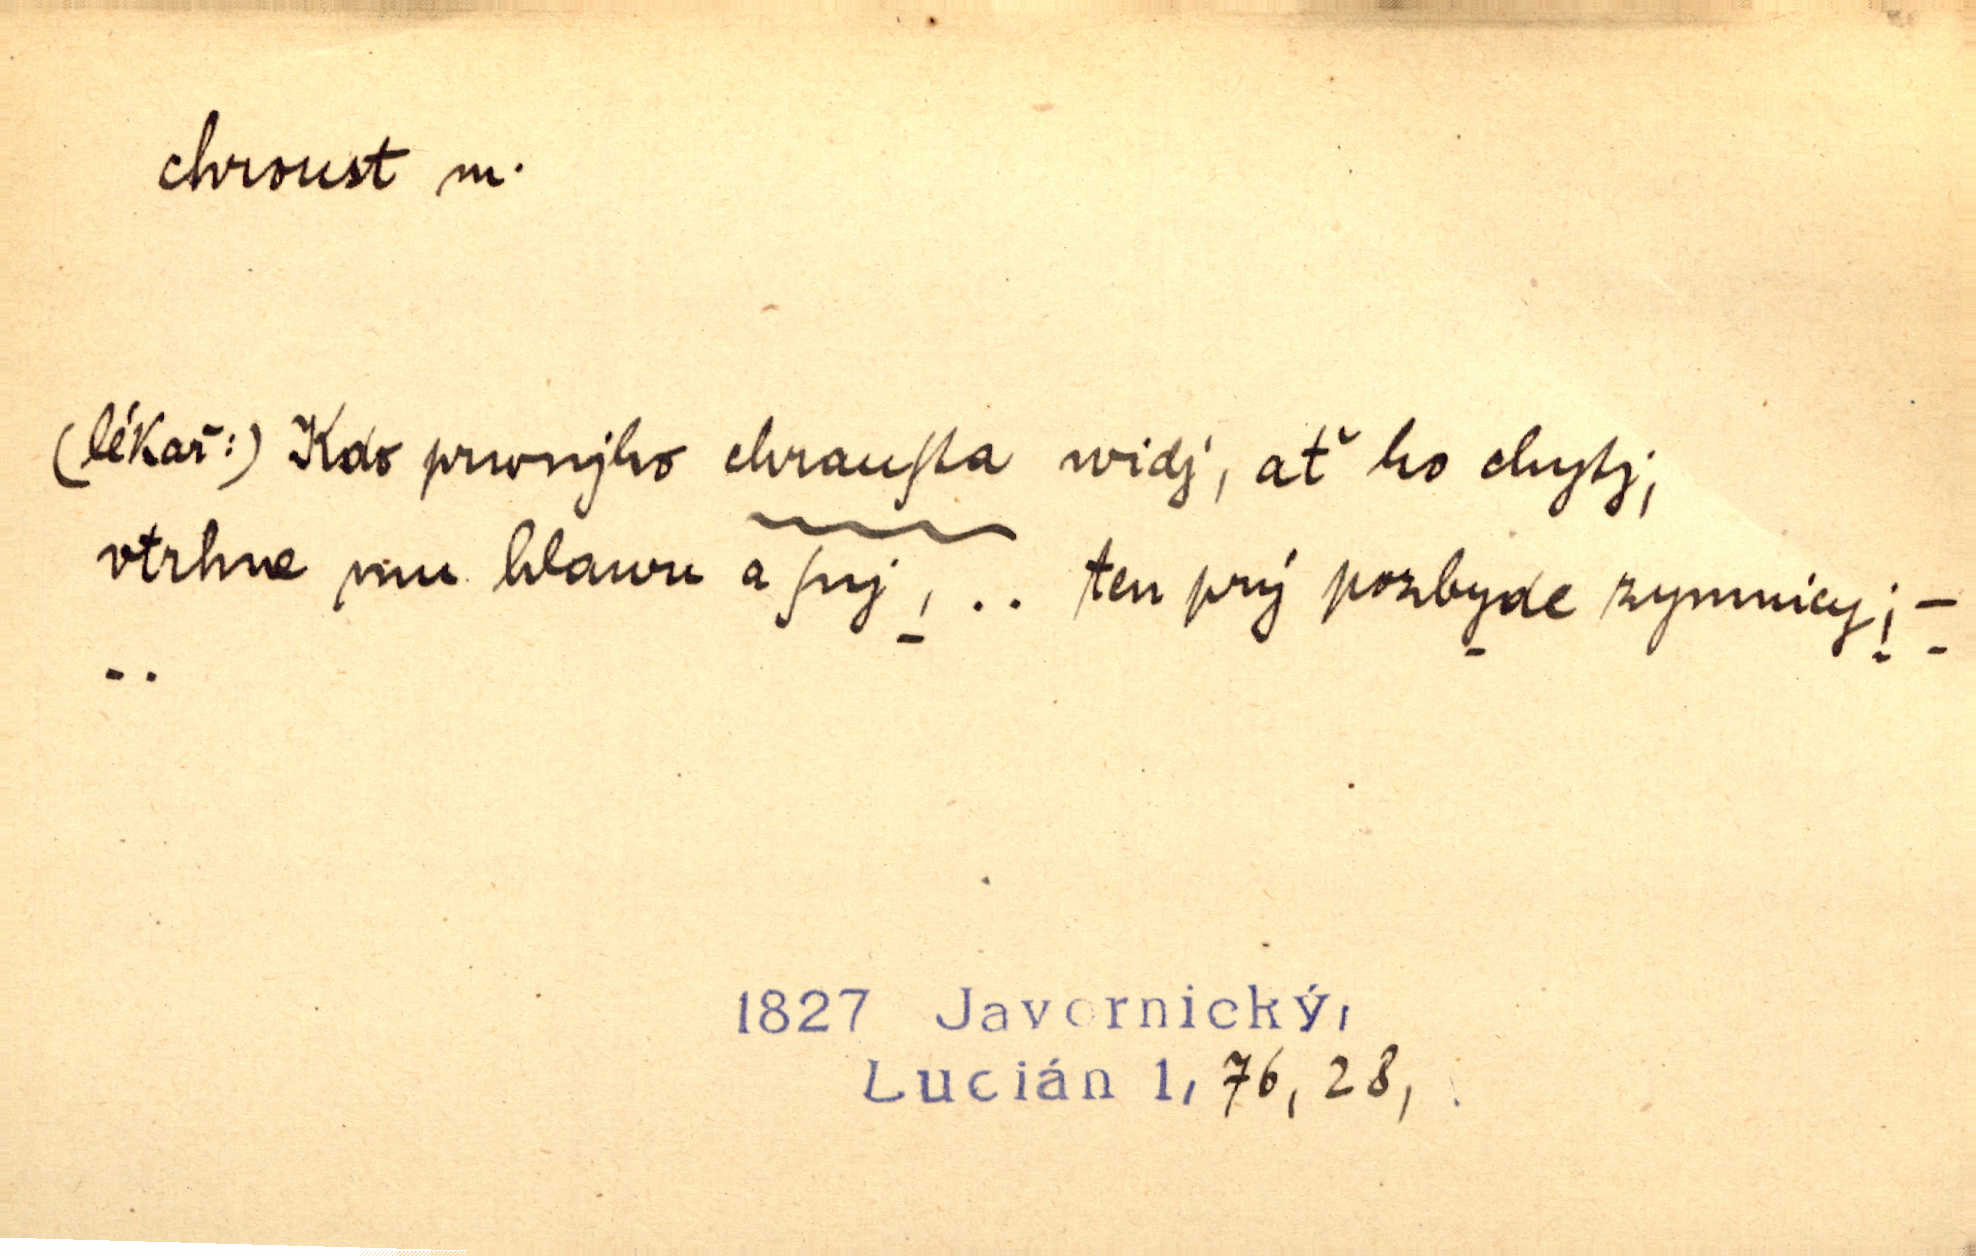 chroust m.
(lékař:) Kdo prwnjho chrauſta widj, ať ho chytj,
vtrhne mu hlawu a ſnj, .. ten prý pozbyde zymnicy; –
..
1827 Javornický,
Lucián 1, 76, 28,